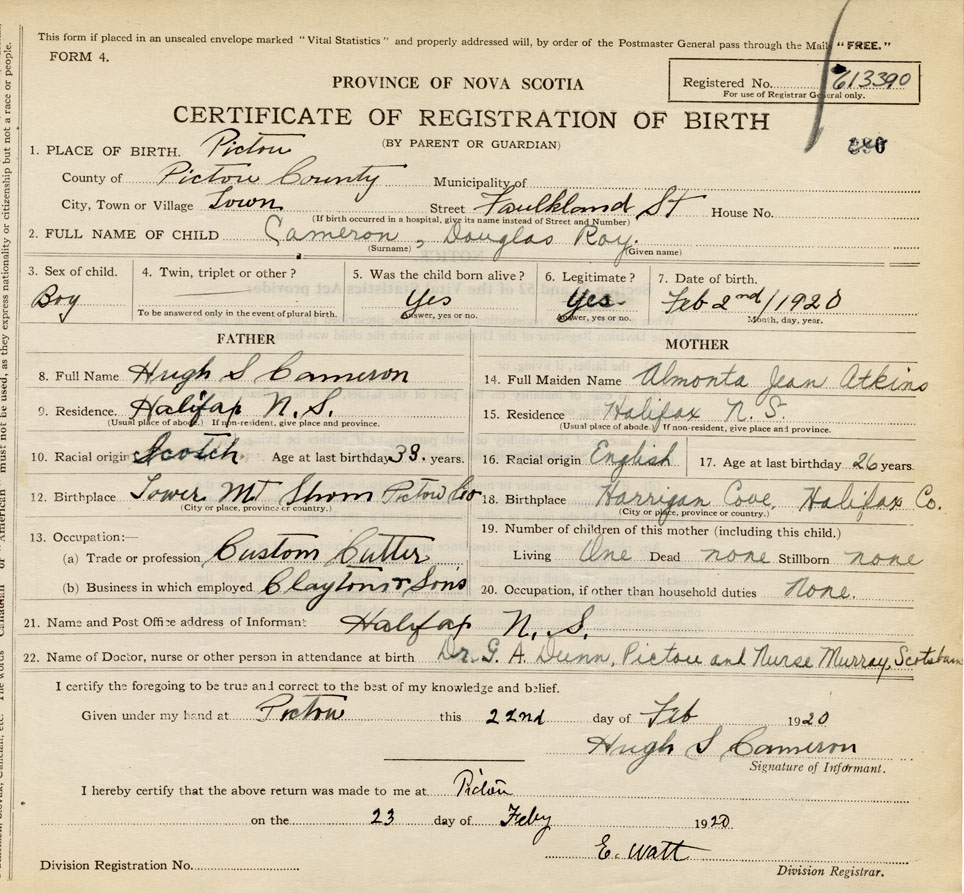 This form if placed in an unsealed envelope marked "Vital Statistics" and properly addressed will, by order of the Postmaster General pass through the Mails "FREE."
FORM 4.
PROVINCE OF NOVA SCOTIA
Registered No. 613390
For use of Registrar General only.
CERTIFICATE OF REGISTRATION OF BIRTH
(BY PARENT OR GUARDIAN)
1. PLACE OF BIRTH. Pictou
County of Pictou County Municipality of
City, Town or Village Town Street Faulkland St House No.
(If birth occurred in a hospital, give its name instead of Street and Number)
2. FULL NAME OF CHILD Cameron, Douglas Roy.
(Surname) (Given name)
3. Sex of child. 4. Twin, triplet or other? 5. Was the child born alive? 6. Legitimate? 7. Date of birth.
Boy Yes Yes Feb 2nd/1920
To be answered only in the event of plural birth. Answer, yes or no. Answer, yes or no. Month, day, year.
FATHER MOTHER
8. Full Name Hugh S Cameron
14. Full Maiden Name Almonta Jean Atkins
9. Residence. Halifax N.S.
(Usual place of abode.) If non-resident, give place and province.
15. Residence Halifax N.S.
(Usual place of abode.) If non-resident, give place and province.
10. Racial origin Scotch Age at last birthday 38. years.
16. Racial origin English 17. Age at last birthday 26 years.
12. Birthplace Mt Thom Pictou Co
(City or place, province or country.)
18. Birthplace Harrigan Cove, Halifax Co.
(City or place, province or country.)
13. Occupation:—
(a) Trade or profession Custom Cutter
(b) Business in which employed Clayton & Sons
19. Number of children of this mother (including this child.)
Living One Dead none Stillborn none
20. Occupation, if other than household duties None.
21. Name and Post Office address of Informant Halifax N.S.
22. Name of Doctor, nurse or other person in attendance at birth Dr. G. A. Dunn, Pictou and Nurse Murray, Scotsburn
I certify the foregoing to be true and correct to the best of my knowledge and belief.
Given under my hand at Pictou this 22nd day of Feb 1920
Hugh S Cameron
Signature of Informant.
I hereby certify that the above return was made to me at Pictou
on the 23 day of Feby 1920
E. Watt
Division Registration No. Division Registrar.